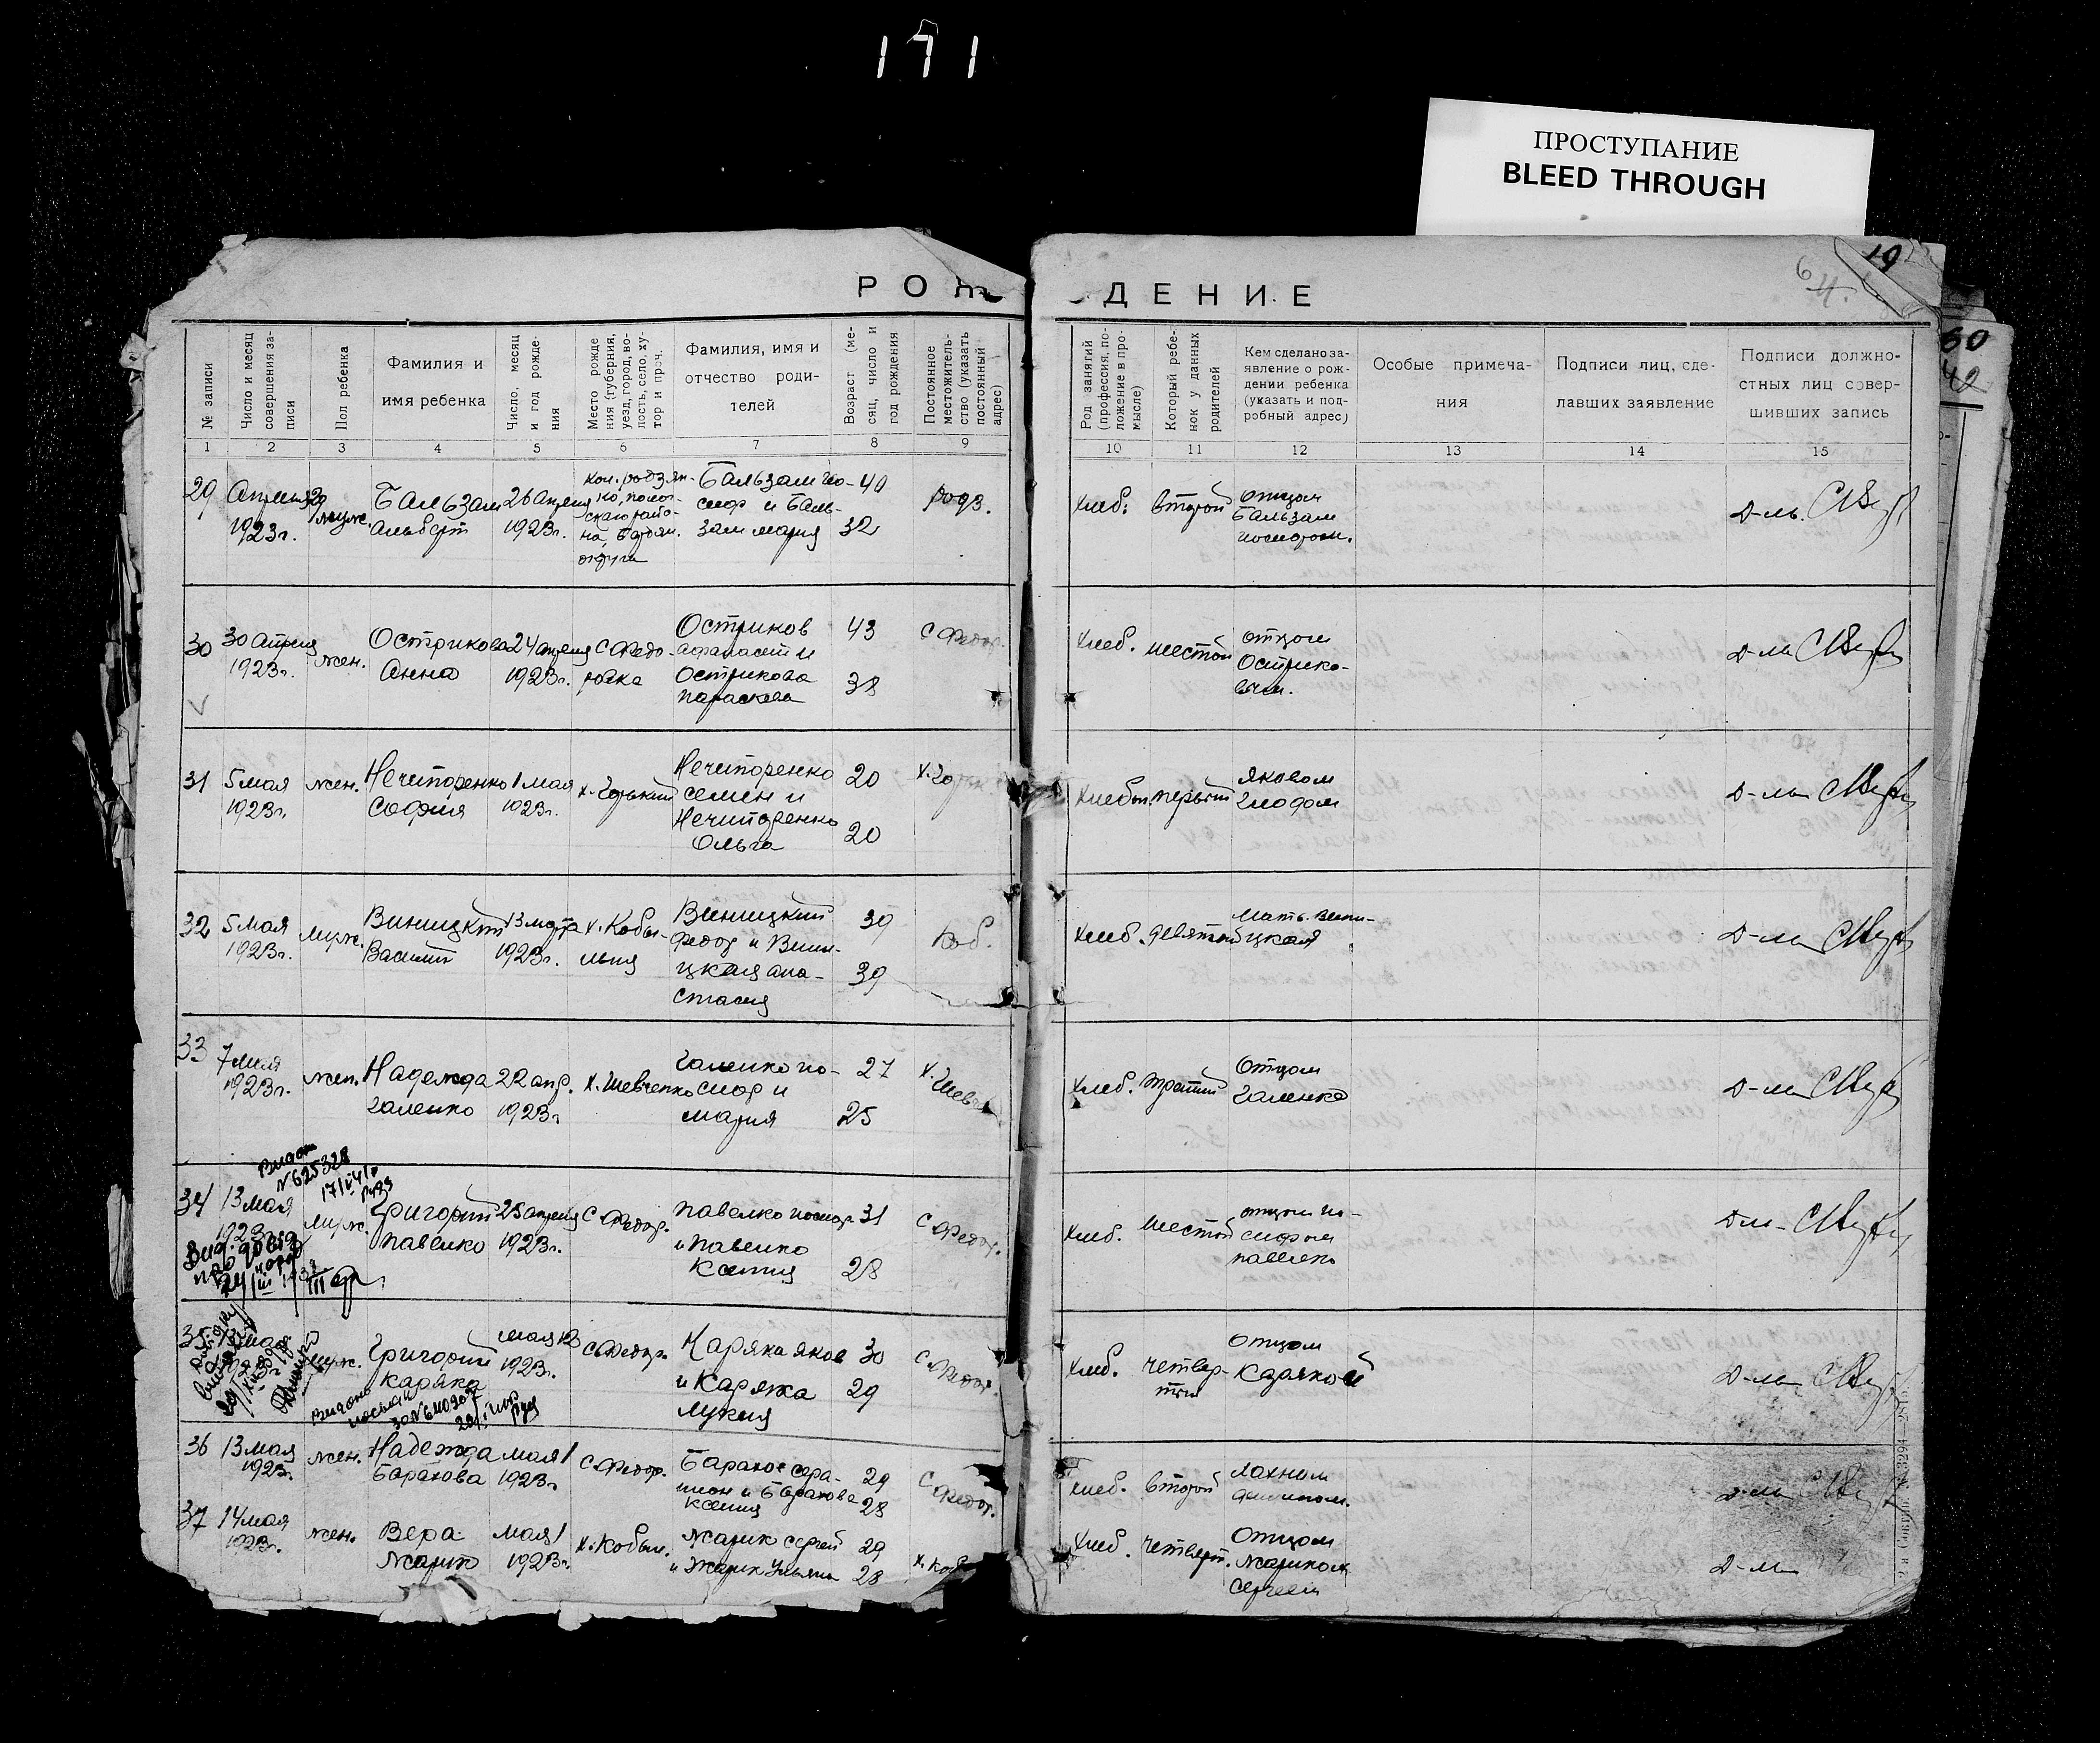 171
ПРОСТУПАНИЕ
BLEED THROUGH
19
6
4.
60
42
РОЖДЕНИЕ
№ записи
Число и месяц совершения записи
Пол ребенка
Фамилия и
имя ребенка
Число, месяц и год рождения
Место рожде
ния (губерния,
уезд, город, во-
лость, село, ху-
тор и проч.
Фамилия, имя и
отчество роди-
телей
Возраст (ме-
сяц, число и
год рождения
Постоянное
местожитель-
ство (указать
постоянный
адрес)
Род занятий
(профессия, по-
ложение в про-
мысле)
Который ребе-
нок у данных
родителей
Кем сделано за-
явление о рож-
дении ребенка
(указать и под-
робный адрес)
Особые примеча-
ния
Подписи лиц, сде-
лавших заявление
Подписи должно-
стных лиц совер-
шивших запись
1 2 3 4 5 6 7 8 9 10 11 12 13 14 15
29
Апреля 29
1923г.
муж.
Бальзам
Альберт
26 апреля
1923г.
кол. родзян-
ко, полог-
скаго райо-
на, Бердян.
округа
Бальзам Ио-
сиф и Баль-
зам мария
40
32
родз.
хлеб.
второй
отцом
Бальзам
Иосифом.
Д-ль.
30
30 Апреля
1923г.
жен.
Острикова
Анна
24 апреля
1923г.
С Федо-
ровка
Остриков
афанасий и
Острикова
параскева
43
38
С Федор.
хлеб.
шестой
отцом
Острико-
вым.
Д-ль
31
5 мая
1923г.
жен.
Нечипоренко
София
1 мая
1923г.
х. Горький
Нечипоренко
семен и
Нечипоренко
Ольга
20
20
х. Горьк
хлебоп.
первый
Яковом
Д-ль
32
5 мая
1923г.
муж.
Виницкий
Василий
13 марта
1923г.
х. Кобы-
льня
Виницкий
Федор и Вини-
цкая ана-
стасия
39
39
Коб.
хлеб.
девятый
Мать Вини-
цкая
Д-ль
33
7 мая
1923г.
жен.
Надежда
Галенко
22 апр.
1923г.
х. Шевченко
Галенко ио-
сиф и
мария
27
25
х. Шевч
хлеб.
третий
Отцом
Галенко
Д-ль
Видан
N 625328
34
13 мая
1923г.
муж.
Григорий
Павелко
25 апреля
1923г.
С. Федор.
Павелко иосиф
и Павелко
Ксения
31
28
С Федор.
хлеб.
шестой
отцом ио-
сифом
павелко
Д-ль
35
муж.
Григорий
Каряка
мая 12
1923г.
С. Федор.
Каряка яков
и Каряка
Лукия
30
29
С. Федор.
хлеб.
четвер-
тый
Отцом
Карякой
Д-ль
36
13 мая
1923г.
жен.
Надежда
Баракова
мая 1
1923г.
С Федор.
Бараков сера-
пион и Баракова
Ксения
29
28
С Федор.
хлеб.
второй
Д-ль
37
14 мая
1923г.
жен.
Вера
Жарик
мая 1
1923г.
х. Кобыл.
Жарик сергей
и Жарик Ульяна
29
28
х. Коб
хлеб.
четверт.
Отцом
Жариком
Сергеем
Д-ль